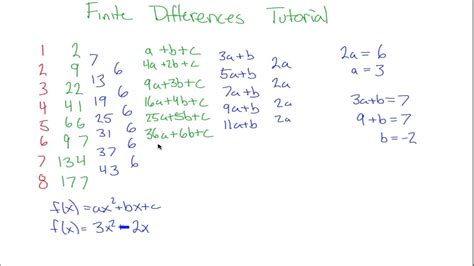 Finite Differences Tutorial
1 2 7 a+b+c 3a+b 2a = 6
2 9 13 6 4a+2b+c 5a+b 2a a = 3
3 22 19 6 9a+3b+c 7a+b 2a
4 41 25 6 16a+4b+c 9a+b 2a 3a+b = 7
5 66 31 6 25a+5b+c 11a+b 2a 9+b = 7
6 97 37 6 36a+6b+c b = -2
7 134 43 6
8 177
f(x) = ax²+bx+c
f(x) = 3x²-2x